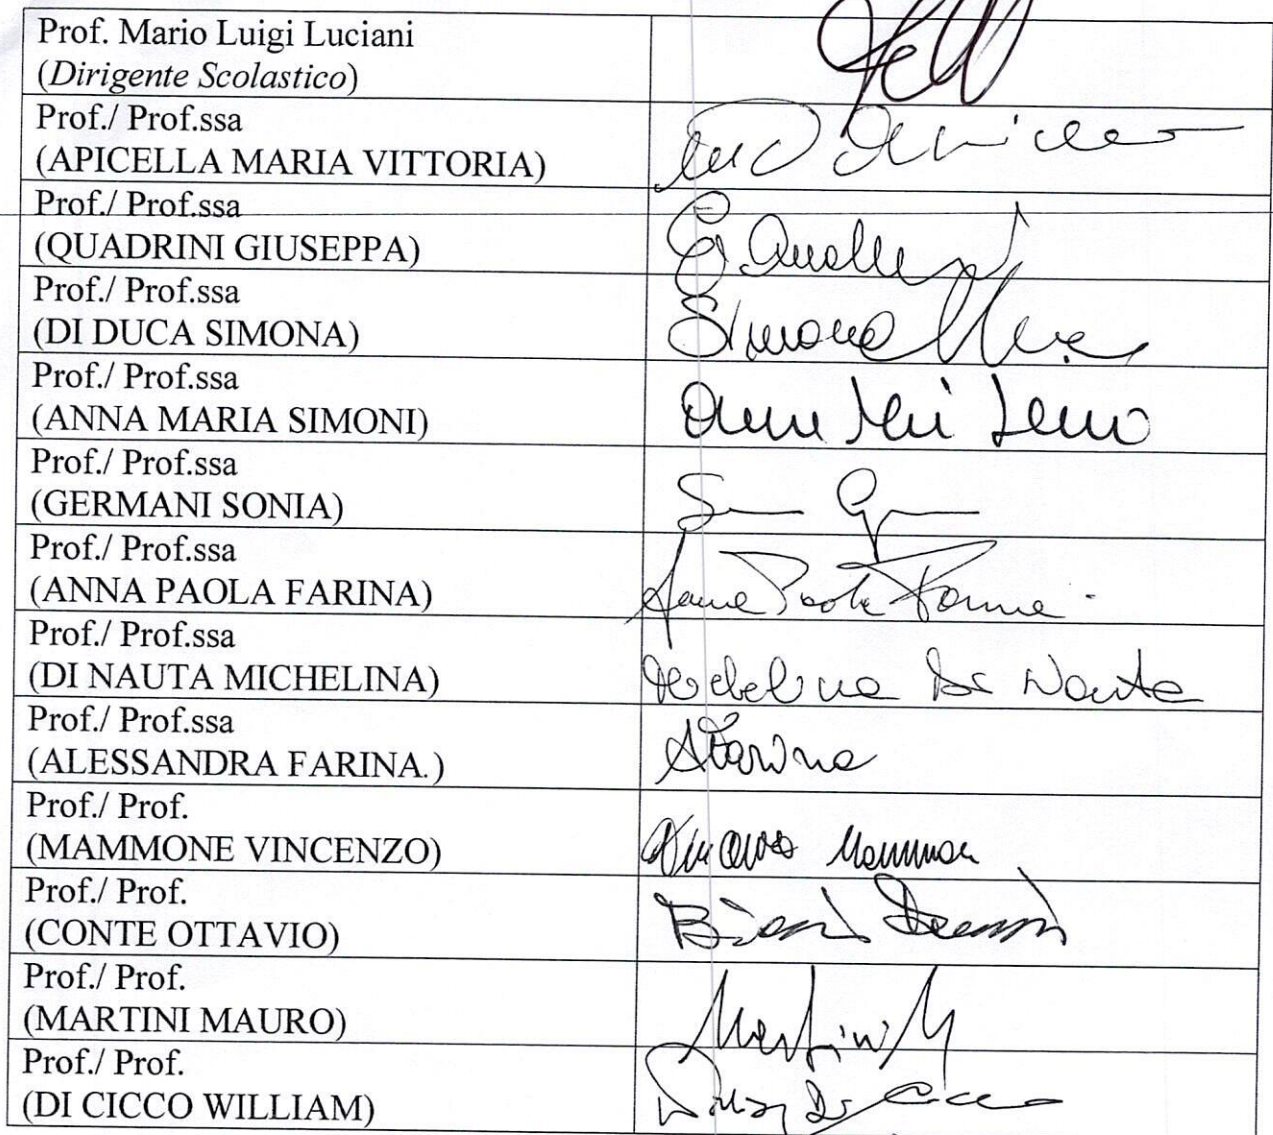 Prof. Mario Luigi Luciani
(Dirigente Scolastico)
Prof./ Prof.ssa
(APICELLA MARIA VITTORIA)
Prof./ Prof.ssa
(QUADRINI GIUSEPPA)
Prof./ Prof.ssa
(DI DUCA SIMONA)
Simona
Prof./ Prof.ssa
(ANNA MARIA SIMONI)
Prof./ Prof.ssa
(GERMANI SONIA)
Prof./ Prof.ssa
(ANNA PAOLA FARINA)
Anna Paola Farina
Prof./ Prof.ssa
(DI NAUTA MICHELINA)
Michelina Di Nauta
Prof./ Prof.ssa
(ALESSANDRA FARINA.)
AFarina
Prof./ Prof.
(MAMMONE VINCENZO)
Vincenzo Mammone
Prof./ Prof.
(CONTE OTTAVIO)
Prof./ Prof.
(MARTINI MAURO)
Martini M
Prof./ Prof.
(DI CICCO WILLIAM)
Di Cicco